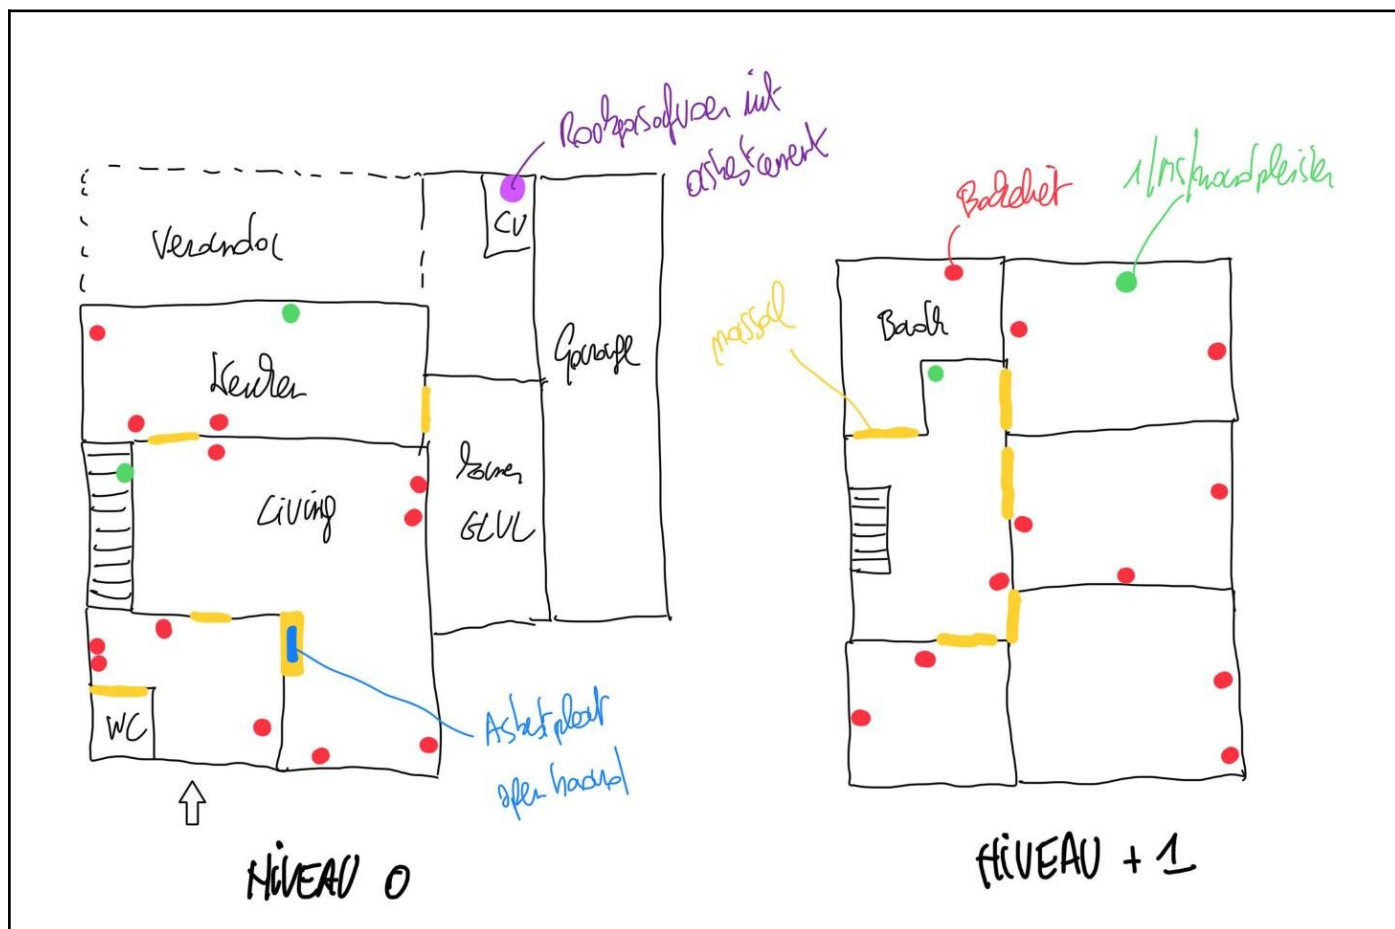 Rookgasafvoer uit
asbestcement
CV
Veranda
Keuken
Garage
Living
Kamer
GLVL
WC
Asbestplaat
open haard
NIVEAU 0
Bakeliet
massal
Badk
NIVEAU + 1